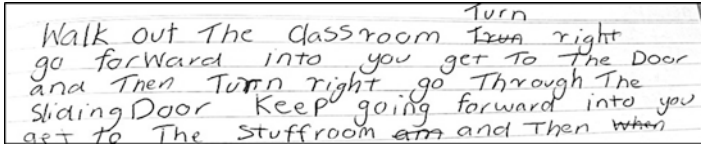 Turn
Walk out The classroom Trun right
go forward into you get To The Door
and Then Turn right go Through The
Sliding Door Keep going forward into you
get to The Stuffroom am and Then when